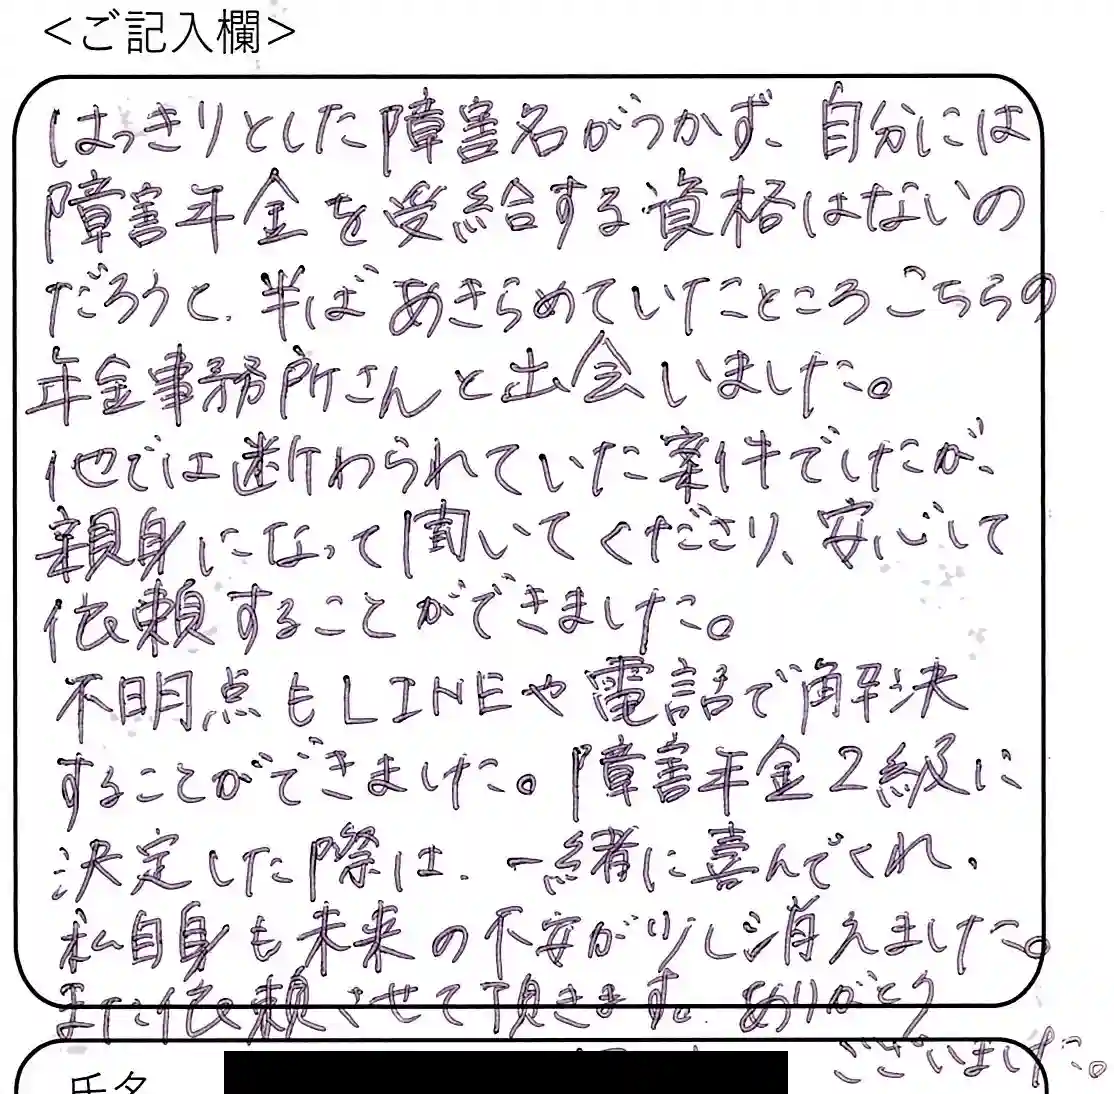 <ご記入欄>
はっきりとした障害名がつかず、自分には
障害年金を受給する資格はないの
だろうと、半ばあきらめていたところこちらの
年金事務所さんと出会いました。
他では断わられていた案件でしたが、
親身になって聞いてくださり、安心して
依頼することができました。
不明点もLINEや電話で解決
することができました。障害年金2級に
決定した際は、一緒に喜んでくれ、
私自身も未来の不安が少し消えました。
また依頼させて頂きます。ありがとう
ございました。
氏名